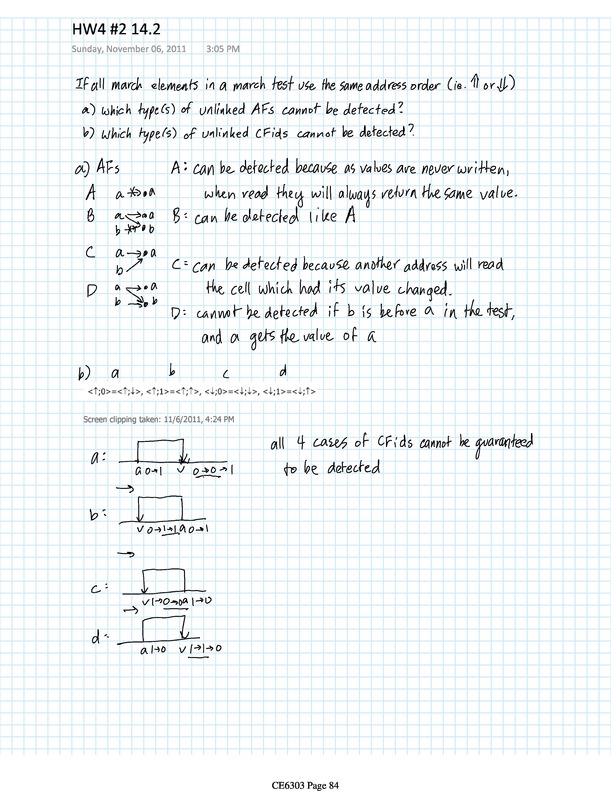 HW4 #2 14.2
Sunday, November 06, 2011 3:05 PM
If all march elements in a march test use the same address order (ie. ⇑ or ⇓)
a) which type(s) of unlinked AFs cannot be detected?
b) which type(s) of unlinked CFids cannot be detected?
a) AFs A: can be detected because as values are never written,
A a a when read they will always return the same value.
B a a B: can be detected like A
b b
C a a
b C: can be detected because another address will read
D a a the cell which had its value changed.
b b D: cannot be detected if b is before a in the test,
and a gets the value of a
b) a b c d
<↑;0>=<↑;↓>, <↑;1>=<↑;↑>, <↓;0>=<↓;↓>, <↓;1>=<↓;↑>
Screen clipping taken: 11/6/2011, 4:24 PM
a: all 4 cases of CFids cannot be guaranteed
a 0→1 v 0→0→1 to be detected
→
b:
v 0→1→1 a 0→1
→
c:
v 1→0→0 a 1→0
→
d:
a 1→0 v 1→1→0
CE6303 Page 84